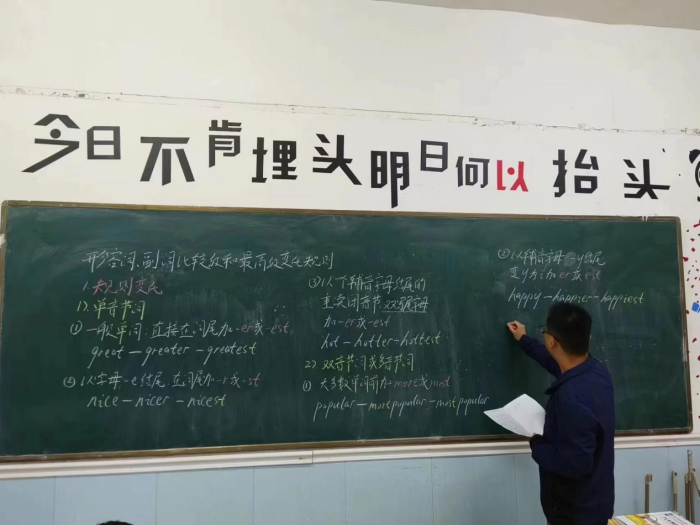 今日不肯埋头明日何以抬头
形容词、副词比较级和最高级变化规则
1. 规则变化
1). 单音节词
① 一般单词，直接在词尾加-er或-est.
great — greater — greatest
② 以字母-e结尾，在词尾加-r或-st
nice — nicer — nicest
③以下辅音字母结尾的
重读闭音节，双写字母
加-er或-est
hot - hotter - hottest
2) 双音节词或多音节词
① 大多数单词前加-more或most
popular — more popular — most popular
②以辅音字母-y结尾
变y为i加-er或est
happy — happier — happiest